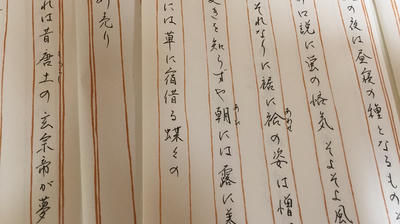 の夜は昼寝の種となるもの
口説に蛍の悋気 そよそよ風
それなりに裾に袷の姿は憎
きを知らすや朝には露に
には草に宿借る蝶々の
売り
れは昔唐土の玄宗帝が夢